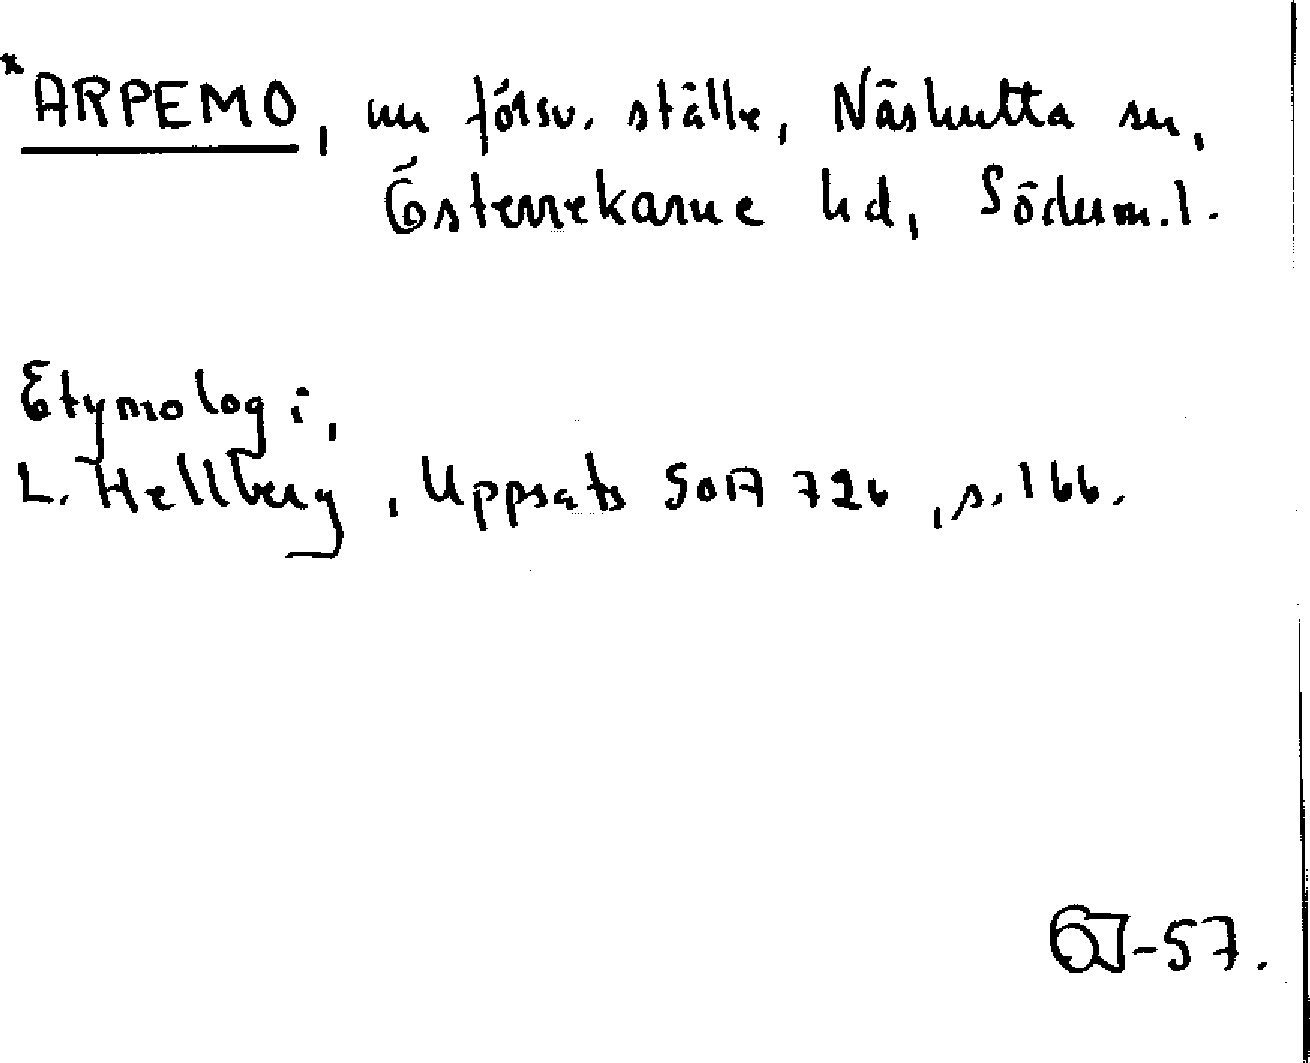 *ARPEMO, nu försv. ställe, Näshulta sn,
Österrekarne hd, Söderm.l.
Etymologi,
L. Hellberg, Uppsats SOA 726, s. 166.
-57.